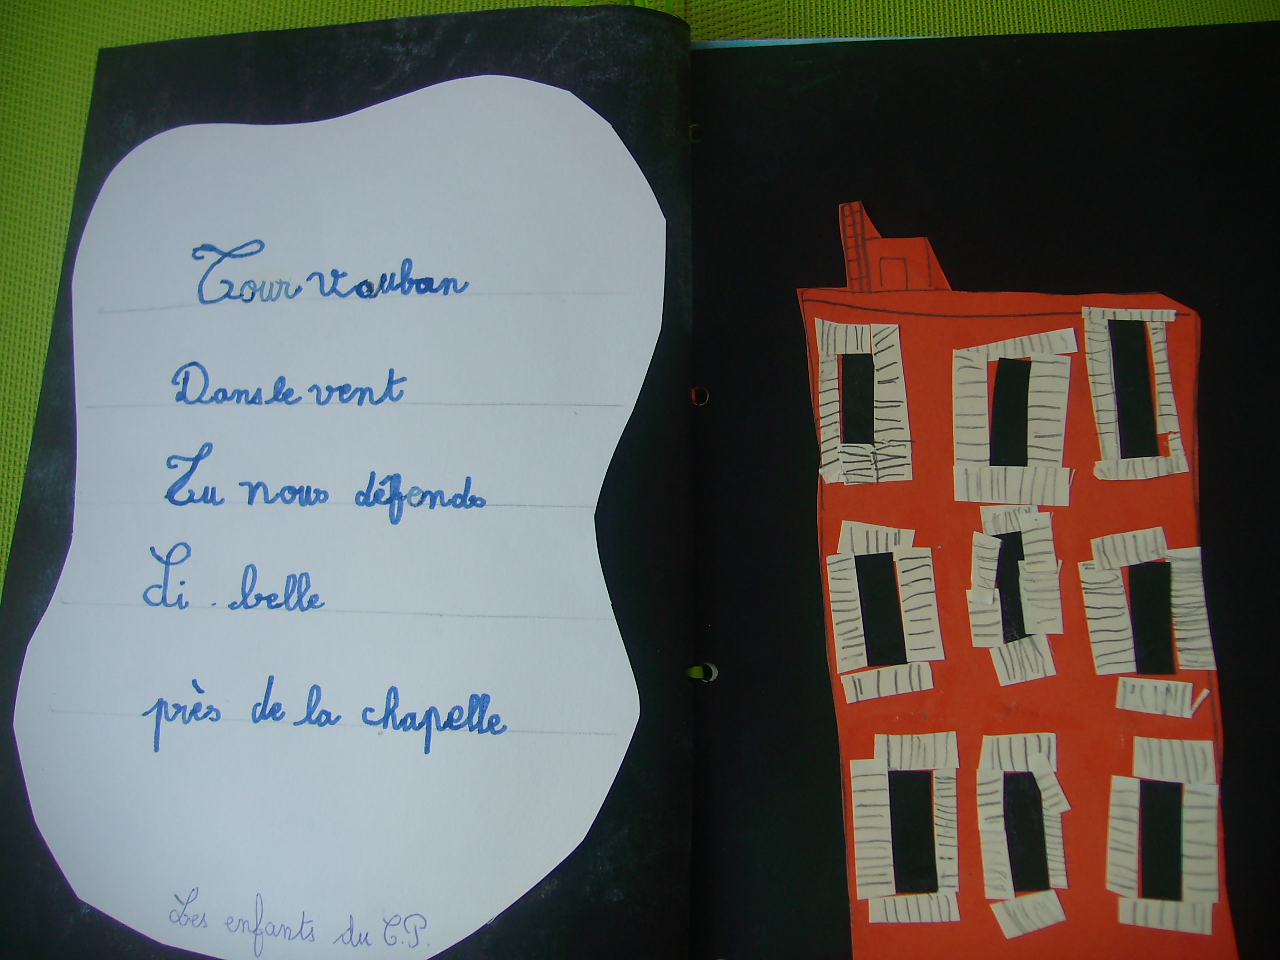 Tour Vauban
Dans le vent
Tu nous défends
Si belle
près de la chapelle
Les enfants du C.P.